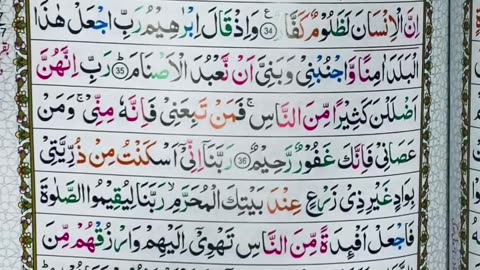 اِنَّ الْاِنْسَانَ لَظَلُوْمٌ كَفَّارٌ ﴿34﴾ وَاِذْ قَالَ اِبْرٰهِيْمُ رَبِّ اجْعَلْ هٰذَا
الْبَلَدَ اٰمِنًا وَّاجْنُبْنِيْ وَبَنِيَّ اَنْ نَّعْبُدَ الْاَصْنَامَ ﴿35﴾ رَبِّ اِنَّهُنَّ
اَضْلَلْنَ كَثِيْرًا مِّنَ النَّاسِ ۚ فَمَنْ تَبِعَنِيْ فَاِنَّهٗ مِنِّيْ ۚ وَمَنْ
عَصَانِيْ فَاِنَّكَ غَفُوْرٌ رَّحِيْمٌ ﴿36﴾ رَبَّنَا اِنِّيْ اَسْكَنْتُ مِنْ ذُرِّيَّتِيْ
بِوَادٍ غَيْرِ ذِيْ زَرْعٍ عِنْدَ بَيْتِكَ الْمُحَرَّمِ ۙ رَبَّنَا لِيُقِيْمُوا الصَّلٰوةَ
فَاجْعَلْ اَفْئِدَةً مِّنَ النَّاسِ تَهْوِيْٓ اِلَيْهِمْ وَارْزُقْهُمْ مِّنَ